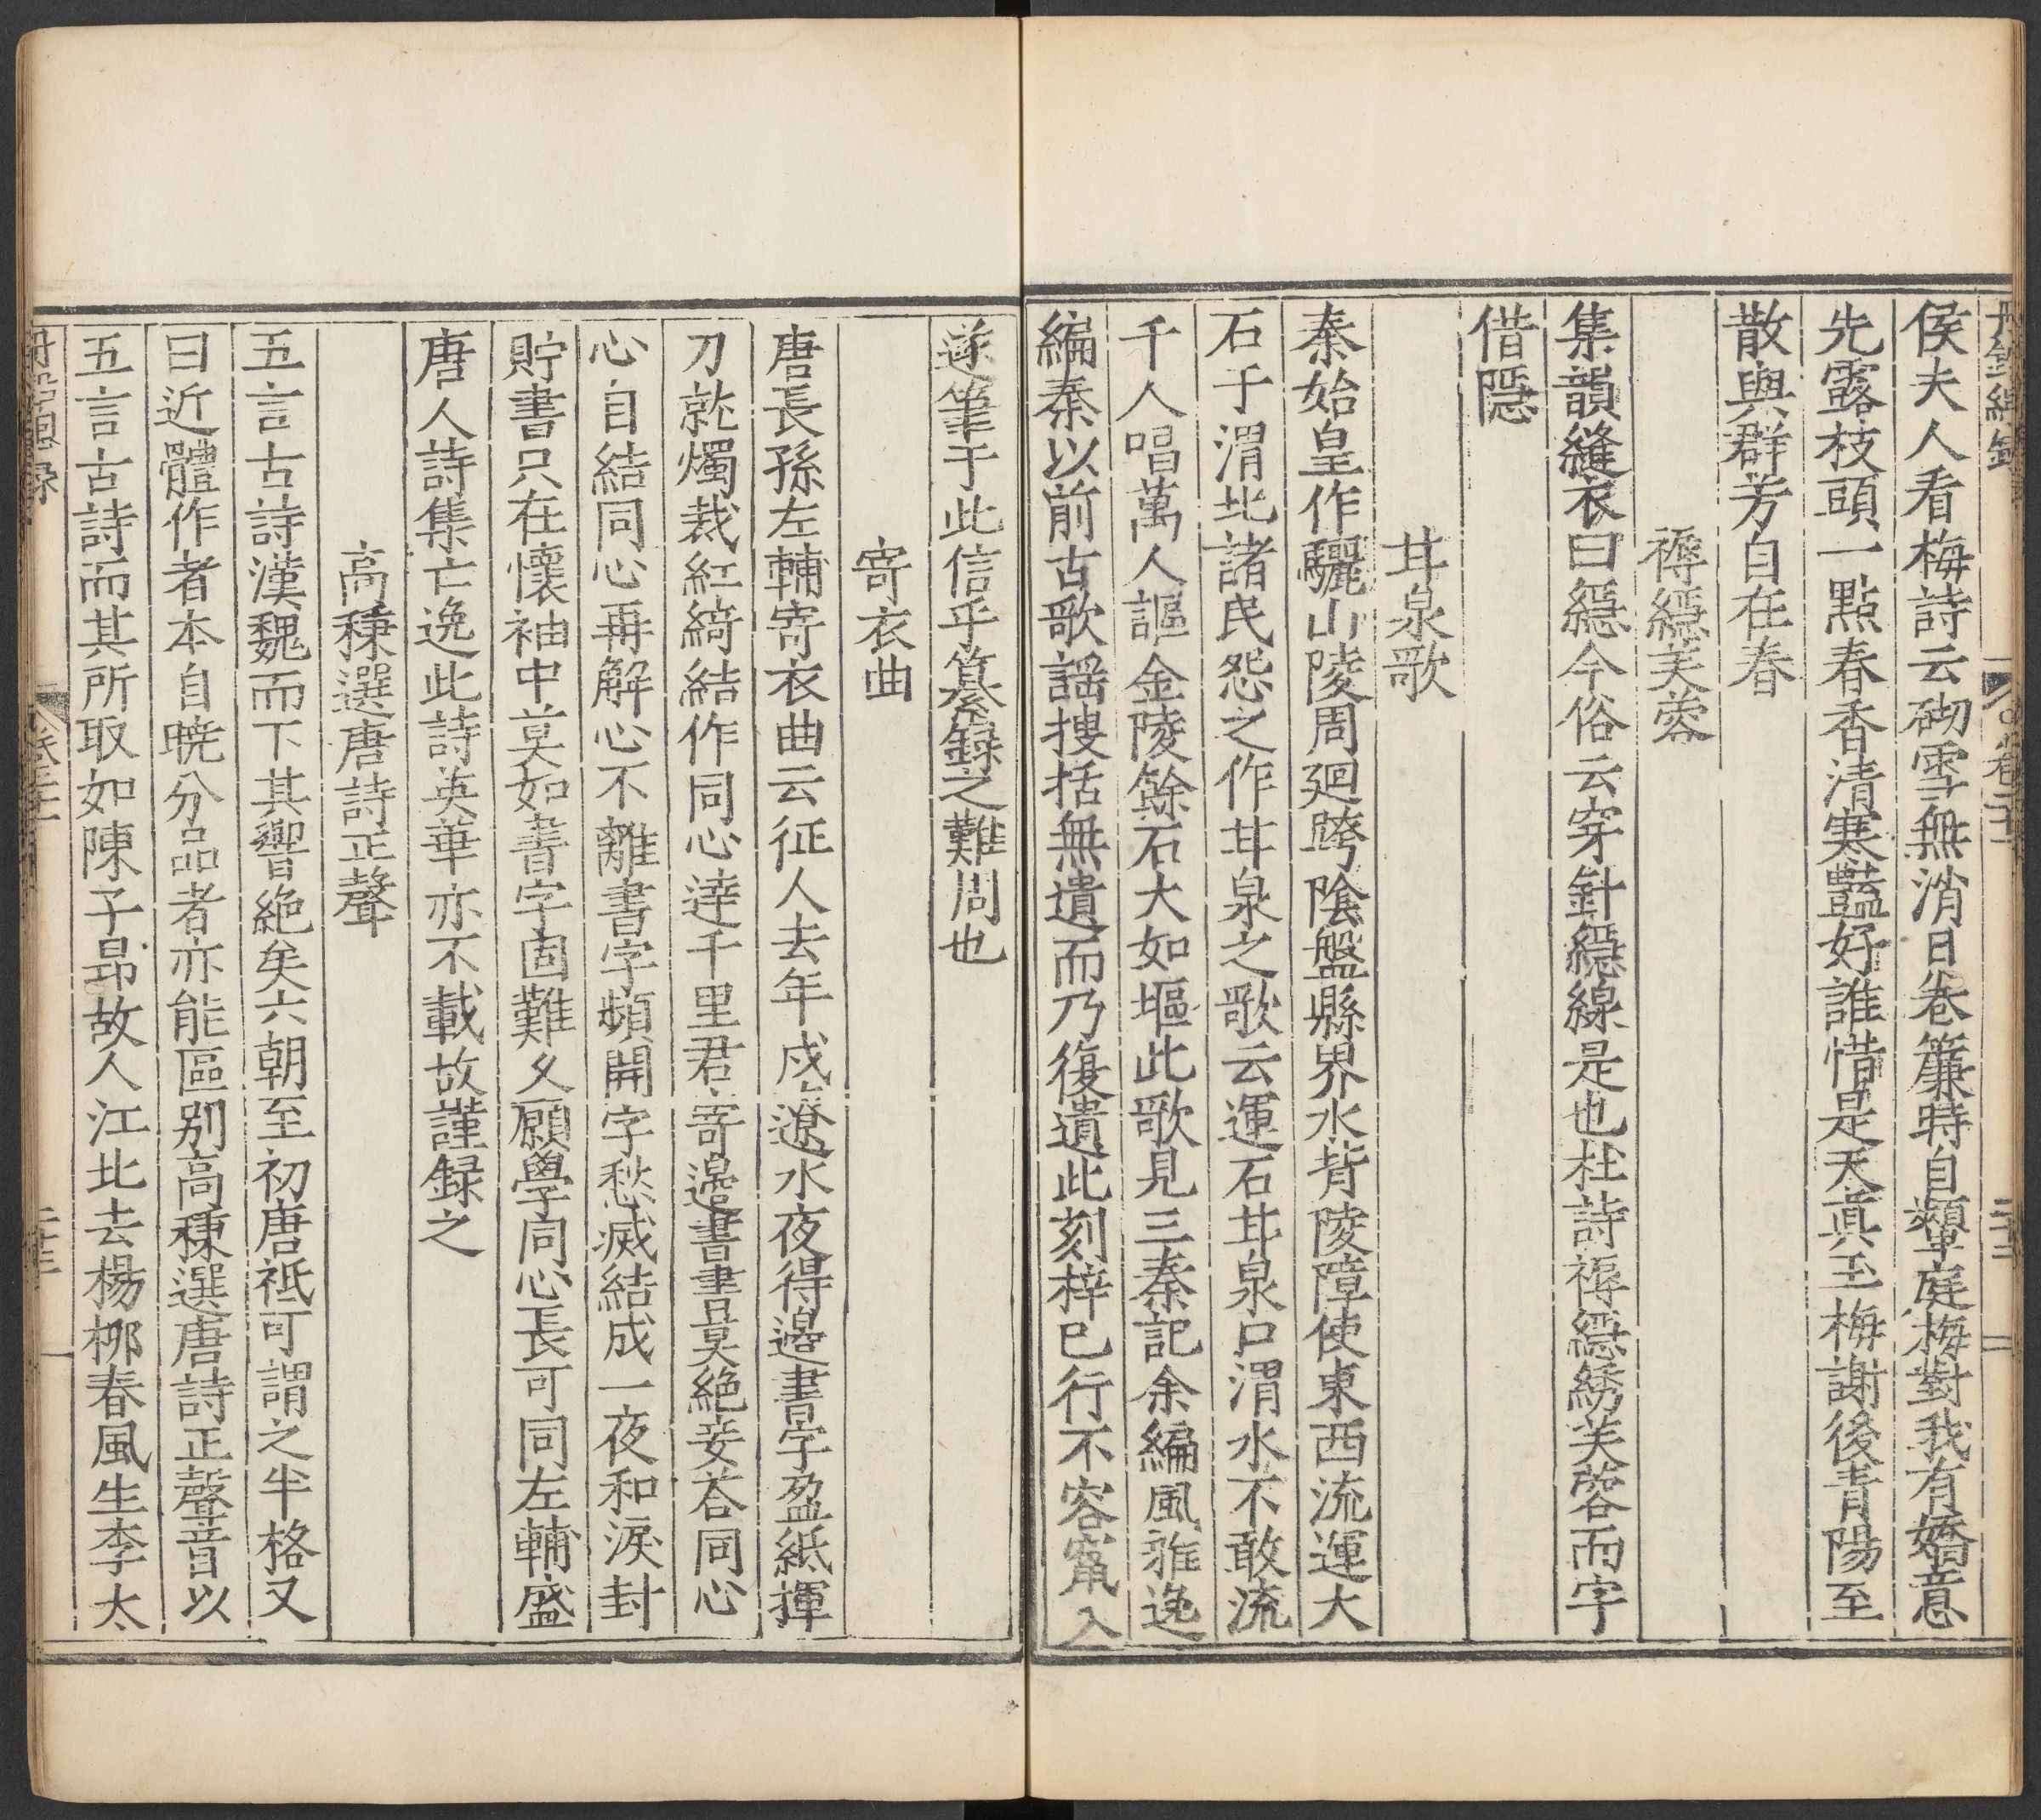 侯夫人看梅詩云砌雪無消日卷簾時自顰庭梅對我有嬌意
先露枝頭一點春香清寒豔好誰惜是天真玉梅謝後青陽至
散與群芳自在春
褥縕芙蓉
集韻縫衣曰縕今俗云穿針縕線是也杜詩褥縕綉芙蓉而字
借隱
甘泉歌
秦始皇作驪山陵周廻跨陰盤縣界水背陵障使東西流運大
石于渭北諸民怨之作甘泉之歌云運石甘泉口渭水不敢流
千人唱萬人謳金陵餘石大如塸此歌見三秦記余編風雅逸
編秦以前古歌謡搜括無遺而乃復遺此刻梓已行不容竄入
遂筆于此信乎纂録之難周也
寄衣曲
唐長孫左輔寄衣曲云征人去年戍遼水夜得邊書字盈紙揮
刀就燭裁紅綺結作同心達千里君寄邊書書莫絶妾荅同心
心自結同心再解心不離書字頻開字愁滅結成一夜和淚封
貯書只在懷袖中莫如書字固難久願學同心長可同左輔盛
唐人詩集亡逸此詩英華亦不載故謹録之
高棅選唐詩正聲
五言古詩漢魏而下其響絶矣六朝至初唐祗可謂之半格又
曰近體作者本自曉分品者亦能區别高棅選唐詩正聲首以
五言古詩而其所取如陳子昂故人江北去楊栁春風生李太